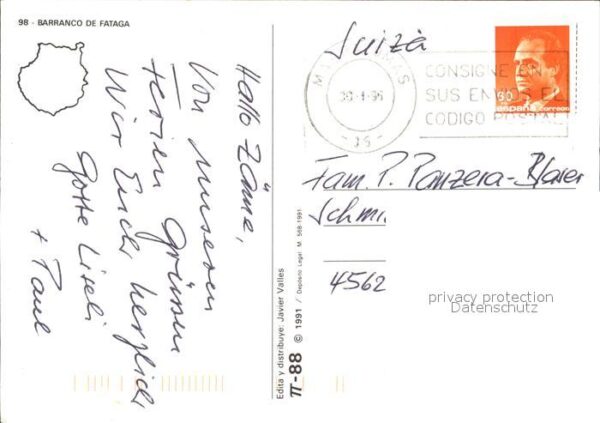 98 - BARRANCO DE FATAGA
Hallo Zäme,
Von unseren
Ferien Grüssen
Wir Euch herzlich
Gotte Liseli
+ Paul
Edita y distribuye: Javier Valles
π-88 © 1991 / Depósito Legal: M. 568-1991
Suiza
30-1-96
-35-
CONSIGNE EN
SUS ENVIOS EL
CODIGO POSTAL
60
españa correos
Fam. P. Panzera-Blaser
Schmi.
4562
privacy protection
Datenschutz